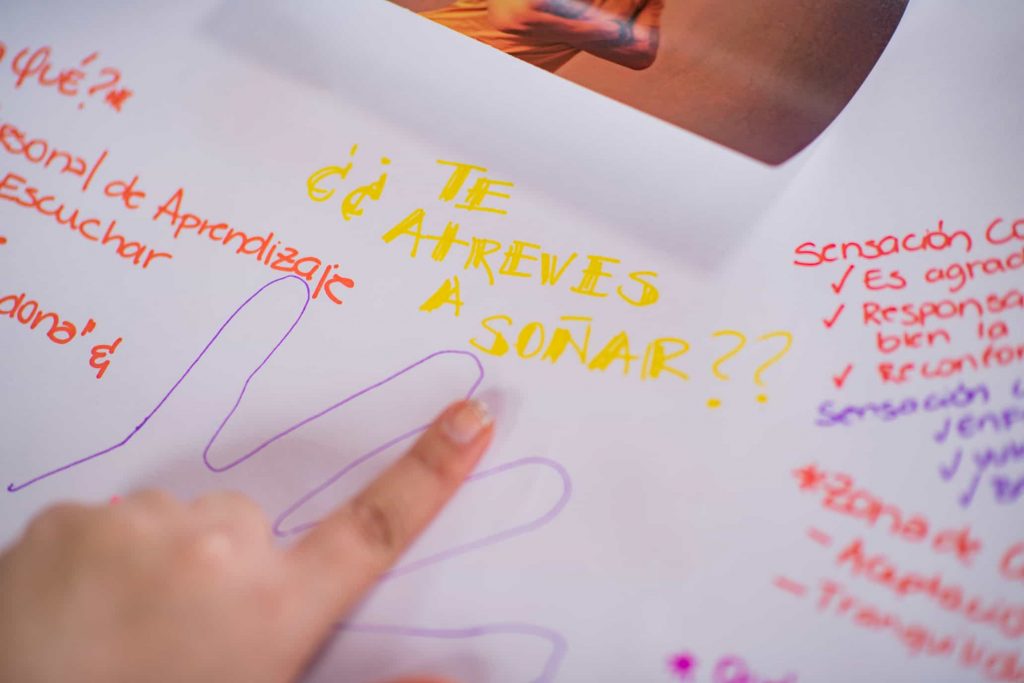 QUÉ?
ersonal de Aprendizaje
Escuchar
dona" &
¿¿ TE
ATREVES
A
SOÑAR ??
Sensación Co
✓ Es agrad
✓ Responsa
bien la
✓ Reconfor
Sensación
*Zona de C
- Aceptació
- Tranquilida